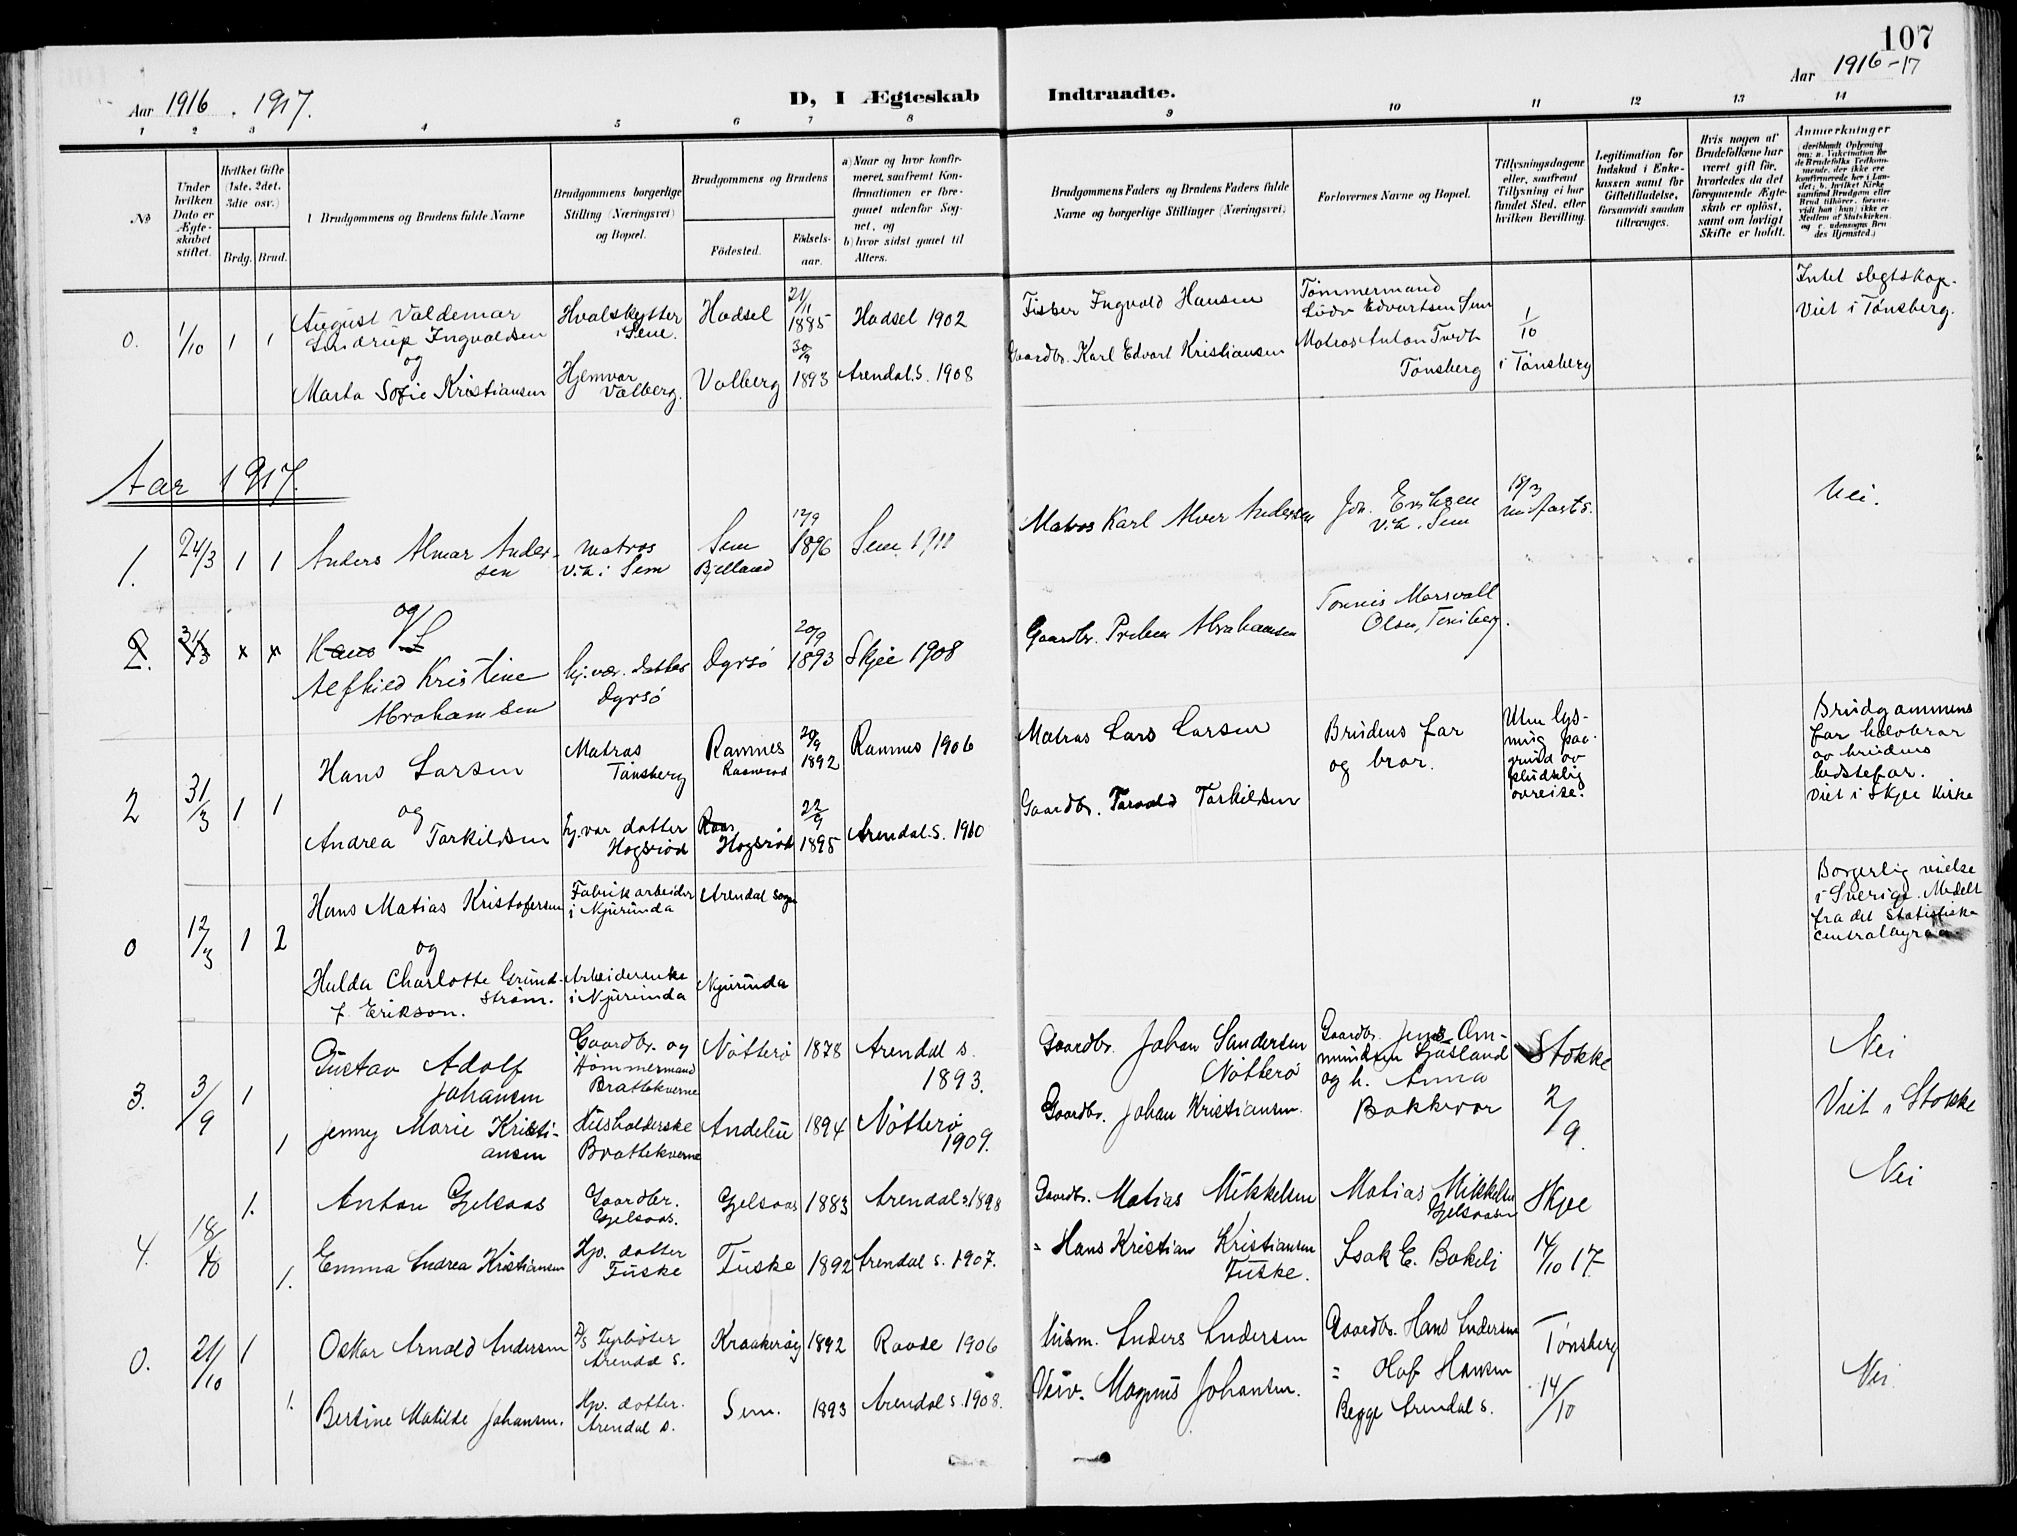 107
Aar 1916. 1917.
D, I Ægteskab Indtraadte.
Aar 1916-17
1 2 3 4 5 6 7 8 9 10 11 12 13 14
No
Under hvilken Dato er Ægteskabet stiftet.
Hvilket Gifte (1ste, 2det, 3die osv.)
Brdg. Brud.
Brudgommens og Brudens fulde Navne
Brudgommens borgerlige Stilling (Næringsvei) og Bopæl.
Brudgommens og Brudens
Födested.
Födselsaar.
a) Naar og hvor konfirmeret, saafremt Konfirmationen er foregaaet udenfor Sognet, og
b) hvor sidst gaaet til Alters.
Brudgommens Faders og Brudens Faders fulde Navne og borgerlige Stillinger (Næringsvei)
Forlovernes Navne og Bopæl.
Tillysningsdagene eller, saafremt Tillysning ei har fundet Sted, efter hvilken Bevilling.
Legitimation for Indskud i Enkekassen samt for Giftetilladelse, forsaavidt saadan tiltrænges.
Hvis nogen af Brudefolkene har været gift før, hvorledes da det foregaaende Ægteskab er opløst, samt om lovligt Skifte er holdt.
Anmerkninger
0. 1/10 1 1
August Valdemar
Lindrup Ingvaldsen
og
Marta Sofie Kristiansen
Hvalskytter
i Sem.
Hjemvær
Valberg.
Hadsel
Valberg
21/11
1885
30/9
1893
Hadsel 1902
Arendal.s. 1908
Fisker Ingvald Hansen
Gaardbr. Karl Edvart Kristiansen
Tømmermand
Edvartsen Sem
Matros Anton
Tønsberg
1/10
i Tønsberg
Intet slegtskap.
Viet i Tønsberg.
Aar 1917.
1. 24/3 1 1
Anders Almar Andersen
og
matros
Sem
Sem
Bjelland
12/9
1896
Sem. 1911
Matros Karl Alver Andersen
Joh. Eriksen
Sem
18/3
Nei.
2. 31/3 x x
Hans L
Alfhild Kristine
Abrahamsen
hj.vær. datter
Dyrsø
Dyrsø
20/9
1893
Skjee 1908
Gaardbr. Preben Abrahamsen
Tønnes Marsvall
Olsen, Tønsberg.
2 31/3 1 1
Hans Larsen
og
Andrea Torkildsen
Matros
Tønsberg
hj.vær datter
Hogsrød
Ramnes
Hogsrød
20/9
1892
22/9
1895
Ramnes 1906
Arendal.s. 1910
Matros Lars Larsen
Gaardbr. Torvald Torkildsen
Brudens far
og bror.
Uten lysning paa grund av pludselig avreise.
Brudgommens
far halvbror
av brudens
bedstefar.
Viet i Skjee Kirke
0 12/3 1 2
Hans Matias Kristofersen
og
Hulda Charlotte Grundstrøm.
f. Erikson.
Fabrikarbeider
i Njurunda
Arbeiderenke
i Njurunda
Arendal sogn
Njurunda
Borgerlig vielse
i Sverige. Meddelt
fra det Statistiske
Centralbyraa
3. 3/9 1 1
Gustav Adolf
Johansen
Jenny Marie Kristiansen
Gaardbr. og
tømmermand
Brattekverne
Husholderske
Brattekverne
Nøtterø
Andebu
1878
1894
Arendal s.
1893.
Nøtterø
1909.
Gaardbr. Johan Sandersen
Nøtterø
Gaardbr. Johan Kristiansen.
Gaardbr. Jens Ommundsen
og h. Anna
Bakkevar
Stokke
2/9
Nei
Viet i Stokke
4. 18/10 1. 1.
Anton Gjelsaas
Emma Andrea Kristiansen
Gaardbr.
Gjelsaas.
Hjv. datter
Fuske
Gjelsaas
Fuske
1883
1892
Arendal s. 1898
Arendal s. 1907.
Gaardbr. Matias Mikkelsen
" Hans Kristian Kristiansen
Fuske.
Matias Mikkelsen
Gjelsaasen
Isak E. Bakeli
Skjee
14/10 17
Nei
0. 21/10 1 1.
Oskar Arnold Andersen
Bertine Matilde Johansen.
D/s Fyrbøter
Arendal s.
Hjv. datter.
Arendal s.
Kraakerøy
Sem.
1892
1893
Raade 1906
Arendal s. 1908.
husm. Anders Andersen
Magnus Johansen.
Gaardbr. Hans Andersen
" Olaf Hansen
Begge Arendal s.
Tønsberg
14/10
Nei